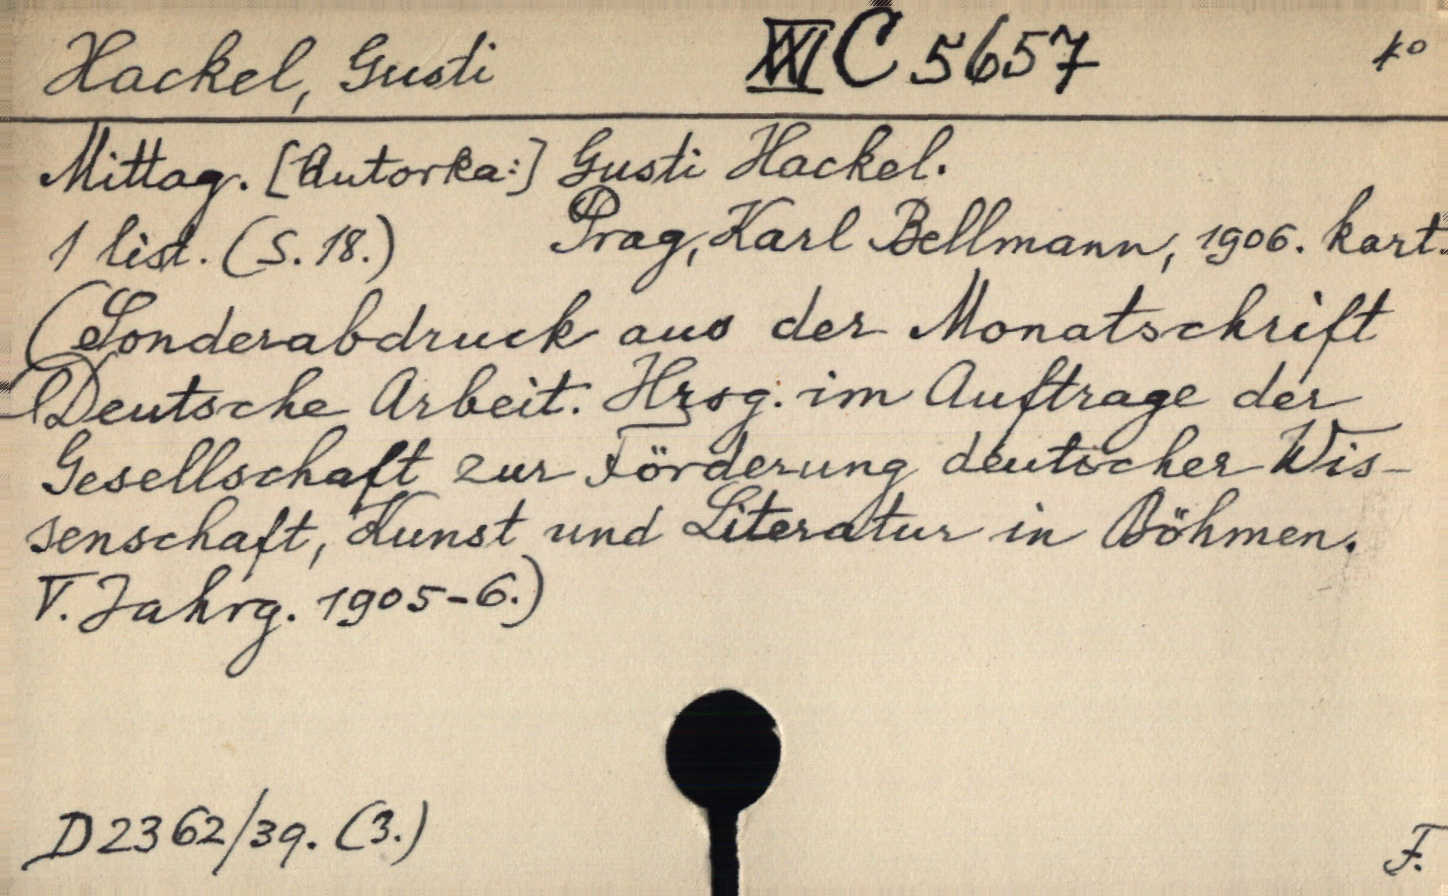 Hackel, Gusti XXI C 5657 k°
Mittag. [Autorka:] Gusti Hackel.
1 list. (S. 18.) Prag, Karl Bellmann, 1906. kart.
(Sonderabdruck aus der Monatschrift
Deutsche Arbeit. Hrsg. im Auftrage der
Gesellschaft zur Förderung deutscher Wis-
senschaft, Kunst und Literatur in Böhmen.
V. Jahrg. 1905-6.)
D 2362/39. (3.)
F.